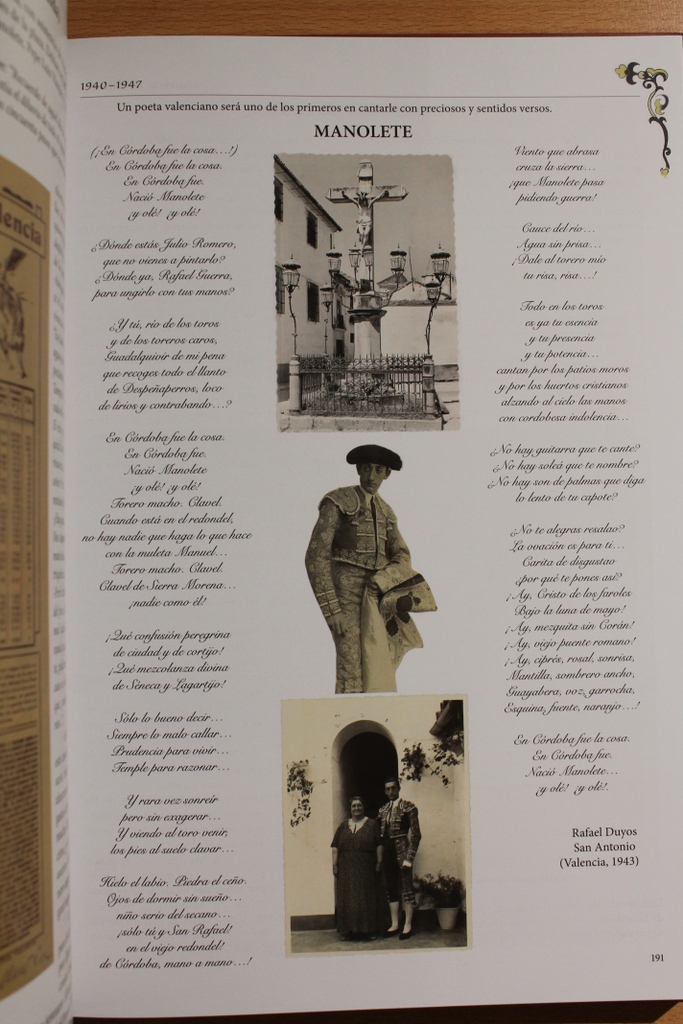 1940–1947
Un poeta valenciano será uno de los primeros en cantarle con preciosos y sentidos versos.
MANOLETE
(¡En Córdoba fue la cosa…!)
En Córdoba fue la cosa.
En Córdoba fue.
Nació Manolete
¡y olé! ¡y olé!
¿Dónde estás Julio Romero,
que no vienes a pintarlo?
¿Dónde ya, Rafael Guerra,
para ungirlo con tus manos?
¿Y tú, río de los toros
y de los toreros caros,
Guadalquivir de mi pena
que recoges todo el llanto
de Despeñaperros, loco
de lirios y contrabando…?
En Córdoba fue la cosa.
En Córdoba fue.
Nació Manolete
¡y olé! ¡y olé!
Torero macho. Clavel.
Cuando está en el redondel,
no hay nadie que haga lo que hace
con la muleta Manuel…
Torero macho. Clavel.
Clavel de Sierra Morena…
¡nadie como él!
¡Qué confusión peregrina
de ciudad y de cortijo!
¡Qué mezcolanza divina
de Séneca y Lagartijo!
Sólo lo bueno decir…
Siempre lo malo callar…
Prudencia para vivir…
Temple para razonar…
Y rara vez sonreír
pero sin exagerar…
Y viendo al toro venir,
los pies al suelo clavar…
Hielo el labio. Piedra el ceño.
Ojos de dormir sin sueño…
niño serio del secano…
¡sólo tú y San Rafael!
en el viejo redondel!
de Córdoba, mano a mano…!
Viento que abrasa
cruza la sierra…
¡que Manolete pasa
pidiendo guerra!
Cauce del río…
Agua sin prisa…
¡Dale al torero mío
tu risa, risa…!
Todo en los toros
es ya tu esencia
y tu presencia
y tu potencia…
cantan por los patios moros
y por los huertos cristianos
alzando al cielo las manos
con cordobesa indolencia…
¿No hay guitarra que te cante?
¿No hay soleá que te nombre?
¿No hay son de palmas que diga
lo lento de tu capote?
¿No te alegras resalao?
La ovación es para ti…
Carita de disgustao
¿por qué te pones así?
¡Ay, Cristo de los faroles
Bajo la luna de mayo!
¡Ay, mezquita sin Corán!
¡Ay, viejo puente romano!
¡Ay, ciprés, rosal, sonrisa,
Mantilla, sombrero ancho,
Guayabera, voz, garrocha,
Esquina, fuente, naranjo…!
En Córdoba fue la cosa.
En Córdoba fue.
Nació Manolete…
¡y olé! ¡y olé!.
Rafael Duyos
San Antonio
(Valencia, 1943)
191